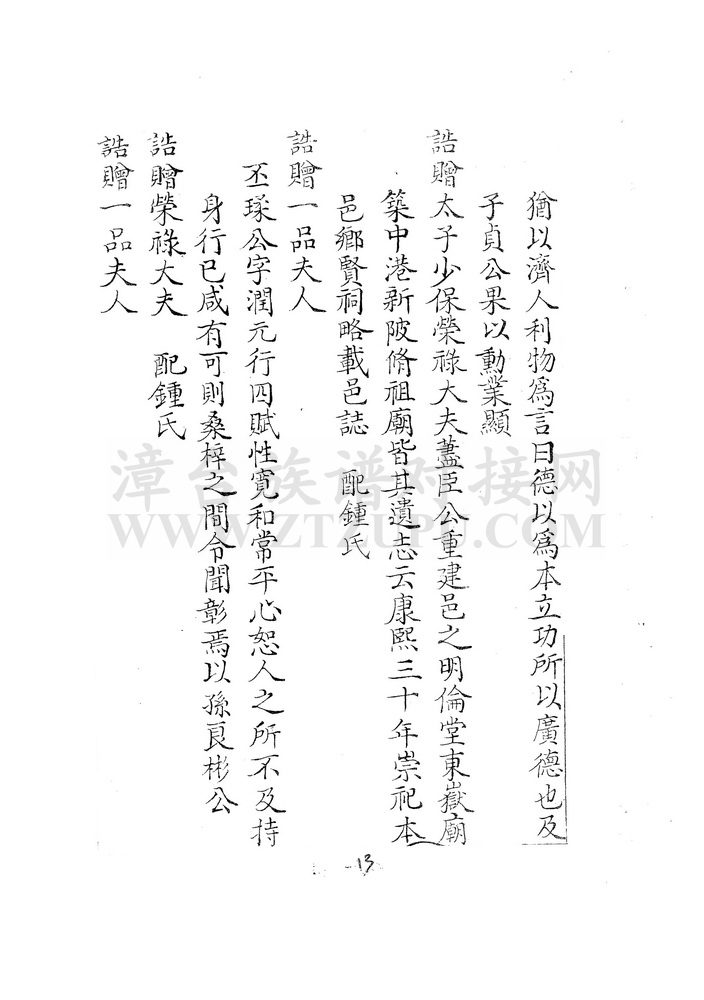 猶以濟人利物爲言曰德以爲本立功所以廣德也及
子貞公果以勳業顯
誥贈太子少保榮祿大夫藎臣公重建邑之明倫堂東嶽廟
築中港新陂脩祖廟皆其遺志云康熙三十年崇祀本
邑鄉賢祠略載邑誌 配鍾氏
誥贈一品夫人
丕球公字潤元行四賦性寬和常平心恕人之所不及持
身行已咸有可則桑梓之間令聞彰焉以孫良彬公
誥贈榮祿大夫 配鍾氏
誥贈一品夫人
漳台族谱对接网
WWW.ZTZUPU.COM
-13